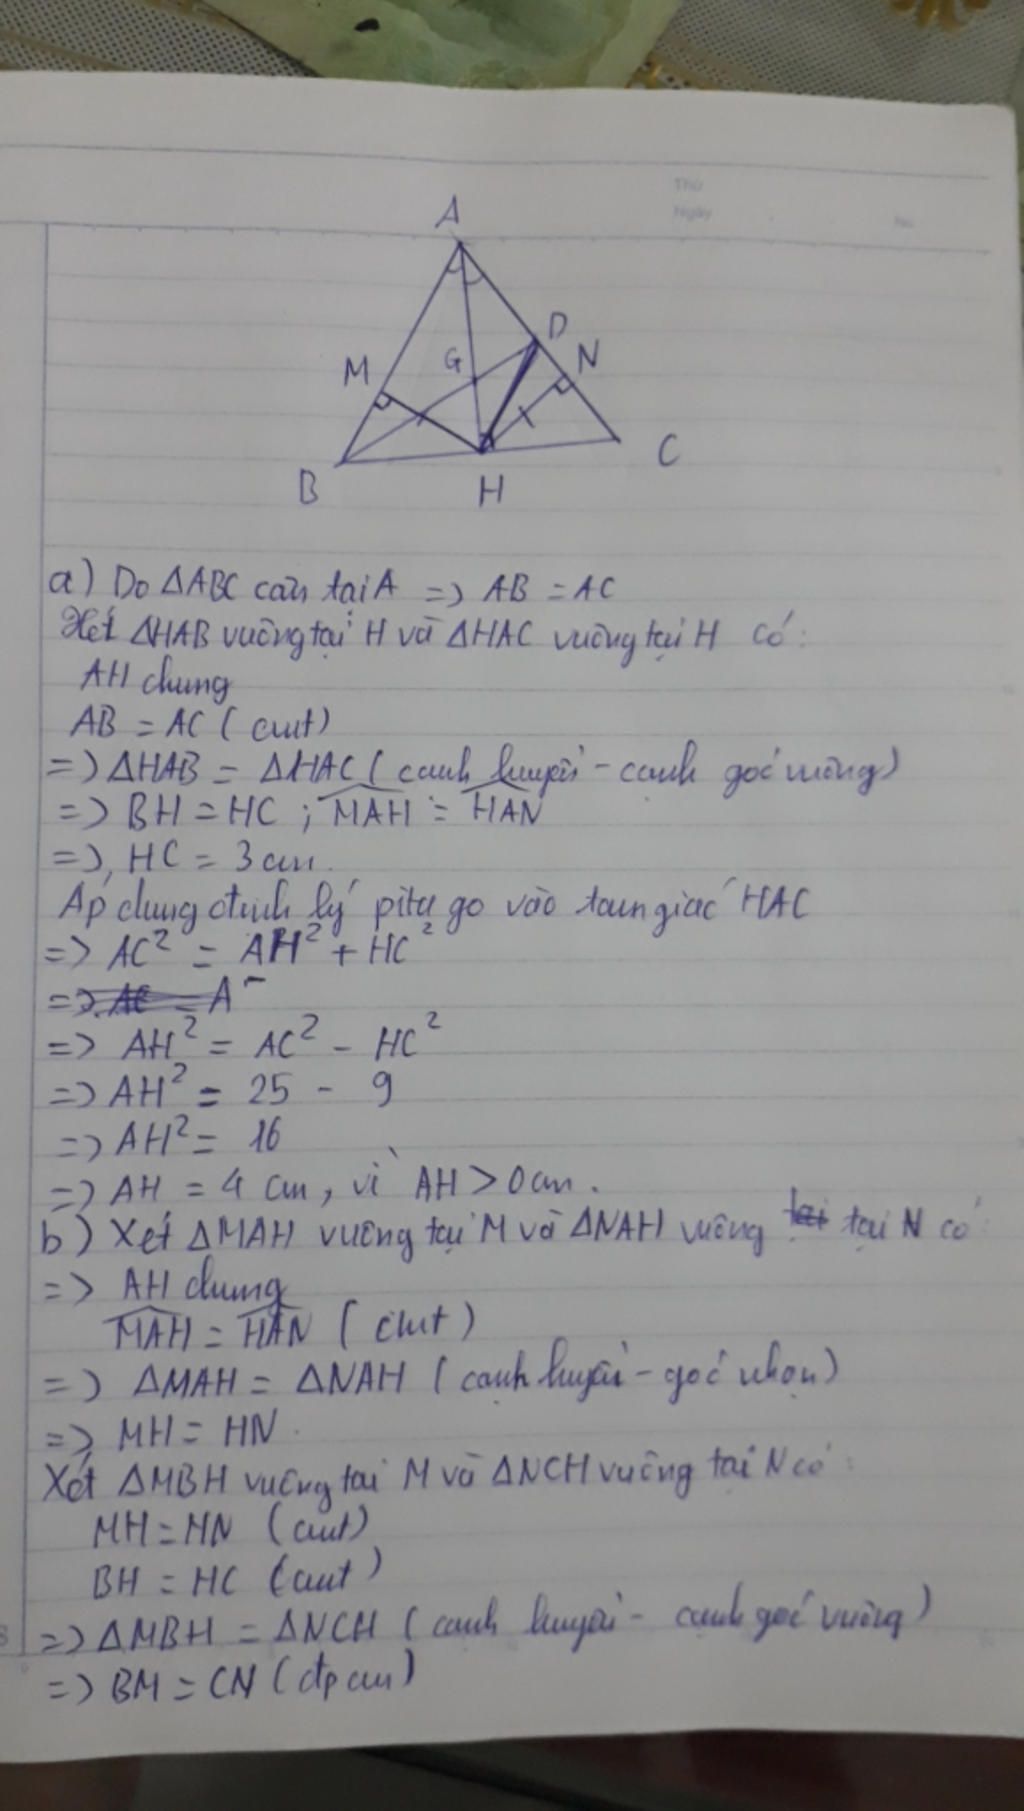 Thứ
Ngày
No
A
D
M
G
N
B
H
C
a) Do ΔABC cân tại A => AB = AC
Xét ΔHAB vuông tại H và ΔHAC vuông tại H có:
AH chung
AB = AC (cmt)
=> ΔHAB = ΔHAC (cạnh huyền - cạnh góc vuông)
=> BH = HC ; \widehat{MAH} = \widehat{HAN}
=> HC = 3cm.
Áp dụng định lý pita go vào tam giác HAC
=> AC² = AH² + HC²
=> AH² = AC² - HC²
=> AH² = 25 - 9
=> AH² = 16
=> AH = 4 cm, vì AH > 0cm.
b) Xét ΔMAH vuông tại M và ΔNAH vuông tại N có:
=> AH chung
\widehat{MAH} = \widehat{HAN} (cmt)
=> ΔMAH = ΔNAH (cạnh huyền - góc nhọn)
=> MH = HN.
Xét ΔMBH vuông tại M và ΔNCH vuông tại N có:
MH = HN (cmt)
BH = HC (cmt)
=> ΔMBH = ΔNCH (cạnh huyền - cạnh góc vuông)
=> BM = CN (đpcm)